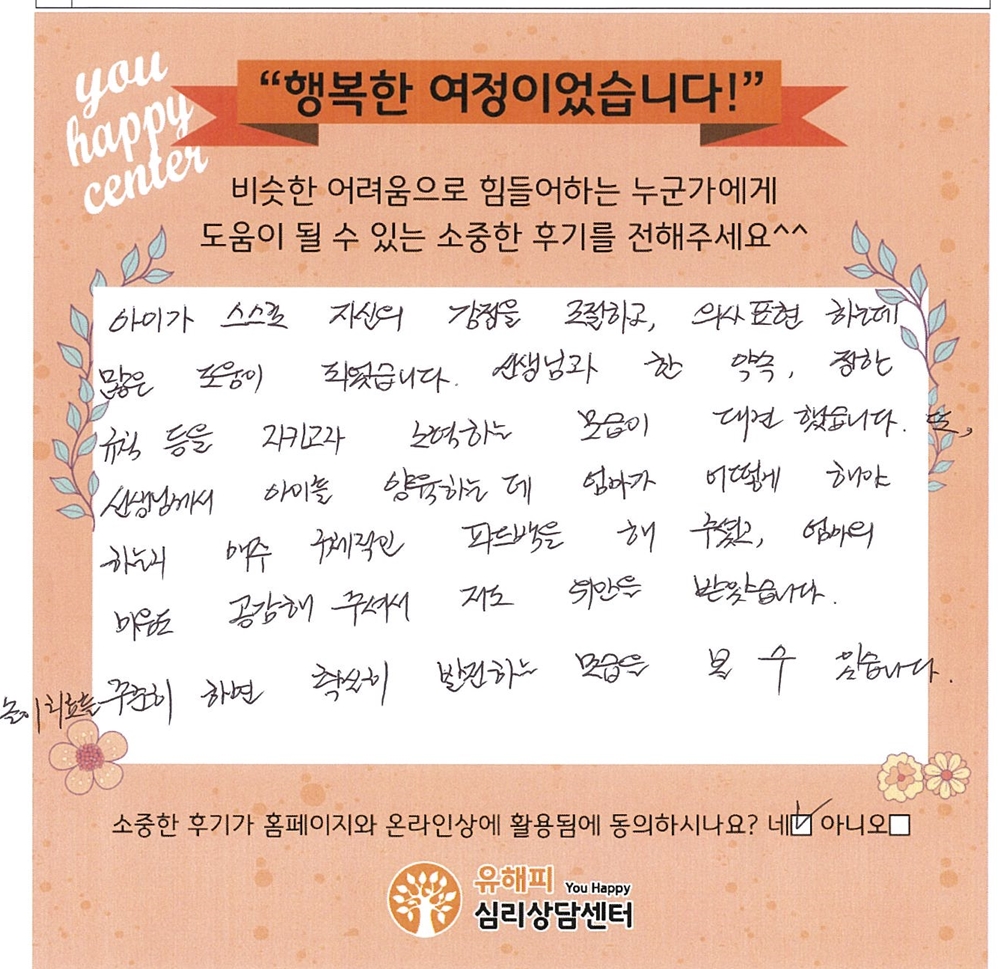 you
happy
center
“행복한 여정이었습니다!”
비슷한 어려움으로 힘들어하는 누군가에게
도움이 될 수 있는 소중한 후기를 전해주세요^^
아이가 스스로 자신의 감정을 조절하고, 의사 표현 하는데
많은 도움이 되었습니다. 선생님과 한 약속, 정한
규칙 등을 지키고자 노력하는 모습이 대견 했습니다. 또,
선생님께서 아이를 양육하는 데 엄마가 어떻게 해야
하는지 매우 구체적인 피드백을 해 주셨고, 엄마의
마음도 공감해 주셔서 저도 위안을 받았습니다.
놀이치료를 꾸준히 하면 확실히 발전하는 모습을 볼 수 있습니다.
소중한 후기가 홈페이지와 온라인상에 활용됨에 동의하시나요? 네 아니오
유해피 You Happy
심리상담센터